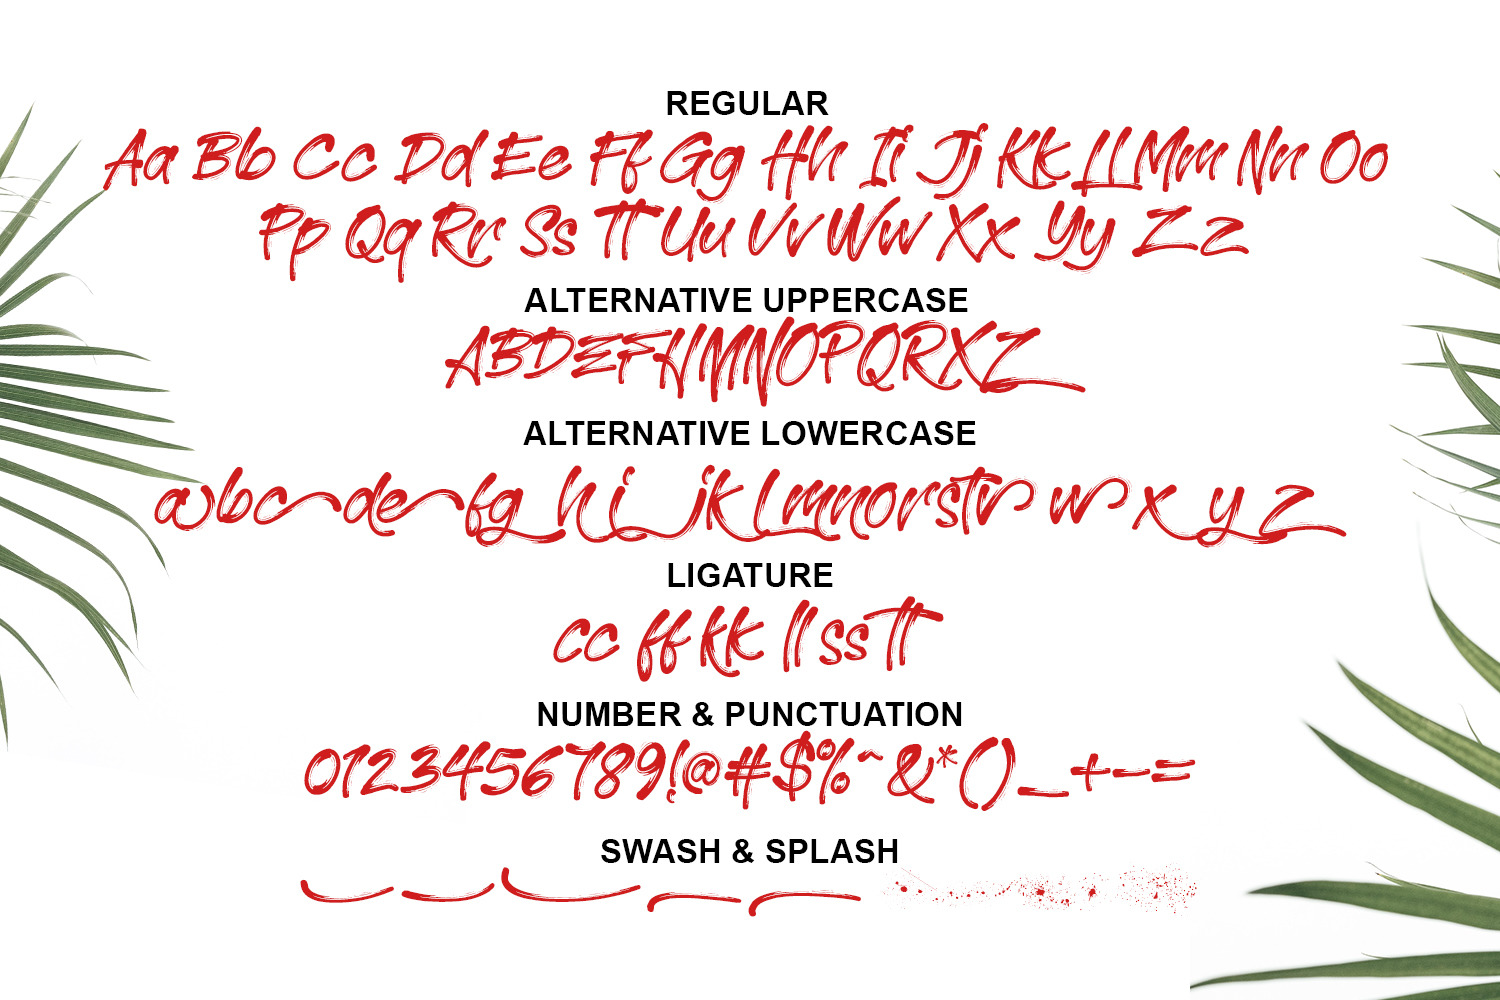 REGULAR
Aa Bb Cc Dd Ee Ff Gg Hh Ii Jj Kk Ll Mm Nn Oo
Pp Qq Rr Ss Tt Uu Vv Ww Xx Yy Zz
ALTERNATIVE UPPERCASE
ABDEFHMNOPQRXZ
ALTERNATIVE LOWERCASE
abcdefghijklmnorstvwxyz
LIGATURE
cc ff kk ll ss tt
NUMBER & PUNCTUATION
0123456789!@#$%^&*()_+-=
SWASH & SPLASH